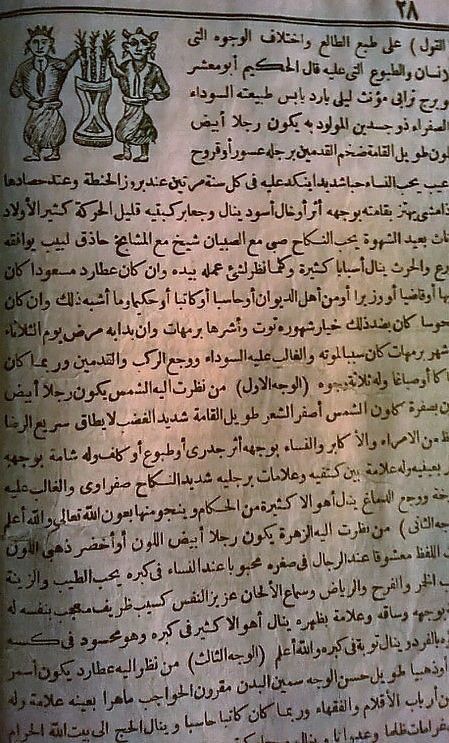 ٢٨
القول) على طبع الطالع واختلاف الوجوه التى
والطبوع التى عليه قال الحكيم أبو معشر
برج ترابى مؤنث ليلى بارد يابس طبيعته السوداء
الصفراء ذو جسدين المولود به يكون رجلا أبيض
طويل القامة ضخم القدمين برجله عسور أو قروح
يحب النساء حبا شديدا ينكد عليه فى كل سنة مرتين عند بروز الحنطة وعند حصادها
ذا مشى يهتز بقامته بوجهه أثر أو خال أسود ينال وجعا بركبتيه قليل الحركة كثير الأولاد
بعيد الشهوة يحب النكاح صبى مع الصبيان شيخ مع المشايخ حاذق لبيب يوافقه
والحرث ينال أسبابا كثيرة وكلما نظر لشئ عمله بيده وان كان عطارد مسعودا كان
أو قاضيا أو وزيرا أو من أهل الديوان أو حاسبا أو كاتبا أو حكيما وما أشبه ذلك وان كان
كان بضد ذلك خيار شهوره توت وأشرها برمهات وان بدا به مرض يوم الثلاثاء
شهر برمهات كان سببا لموته والغالب عليه السوداء ووجع الركب والقدمين وربما كان
أو صباغا وله ثلاثة وجوه (الوجه الاول) من نظرت اليه الشمس يكون رجلا أبيض
بصفرة كلون الشمس أصفر الشعر طويل القامة شديد الغضب لا يطاق سريع الرضا
من الامراء والأكابر والنساء بوجهه أثر جدرى أو طبوع أو كلف وله شامة بوجهه
بعينيه وله علامة بين كتفيه وعلامات برجليه شديد النكاح صفراوى والغالب عليه
ووجع الدماغ ينال أهوالا كثيرة من الحكام وينجو منها بعون الله تعالى والله أعلم
الثانى) من نظرت اليه الزهرة يكون رجلا أبيض اللون أو أخضر ذهبى اللون
اللفظ معشوقا عند الرجال فى صغره محبوبا عند النساء فى كبره يحب الطيب والزينة
الخر والفرح والرياض وسماع الألحان عزيز النفس كسيب ظريف معجب بنفسه له
بوجهه وساقه وعلامة بظهره ينال أهوالا كثيرة فى كبره وهو محسود فى كسبه
بالفرد وينال توبة فى كبره والله أعلم (الوجه الثالث) من نظر اليه عطارد يكون أسمر
أو ذهبيا طويل حسن الوجه سمين البدن مقرون الحواجب ماهرا بعينه علامة وله
أرباب الأقلام والفقهاء وربما كان كاتبا حاسبا وينال الحج الى بيت الله الحرام
غرامات ظلما وعدوانا